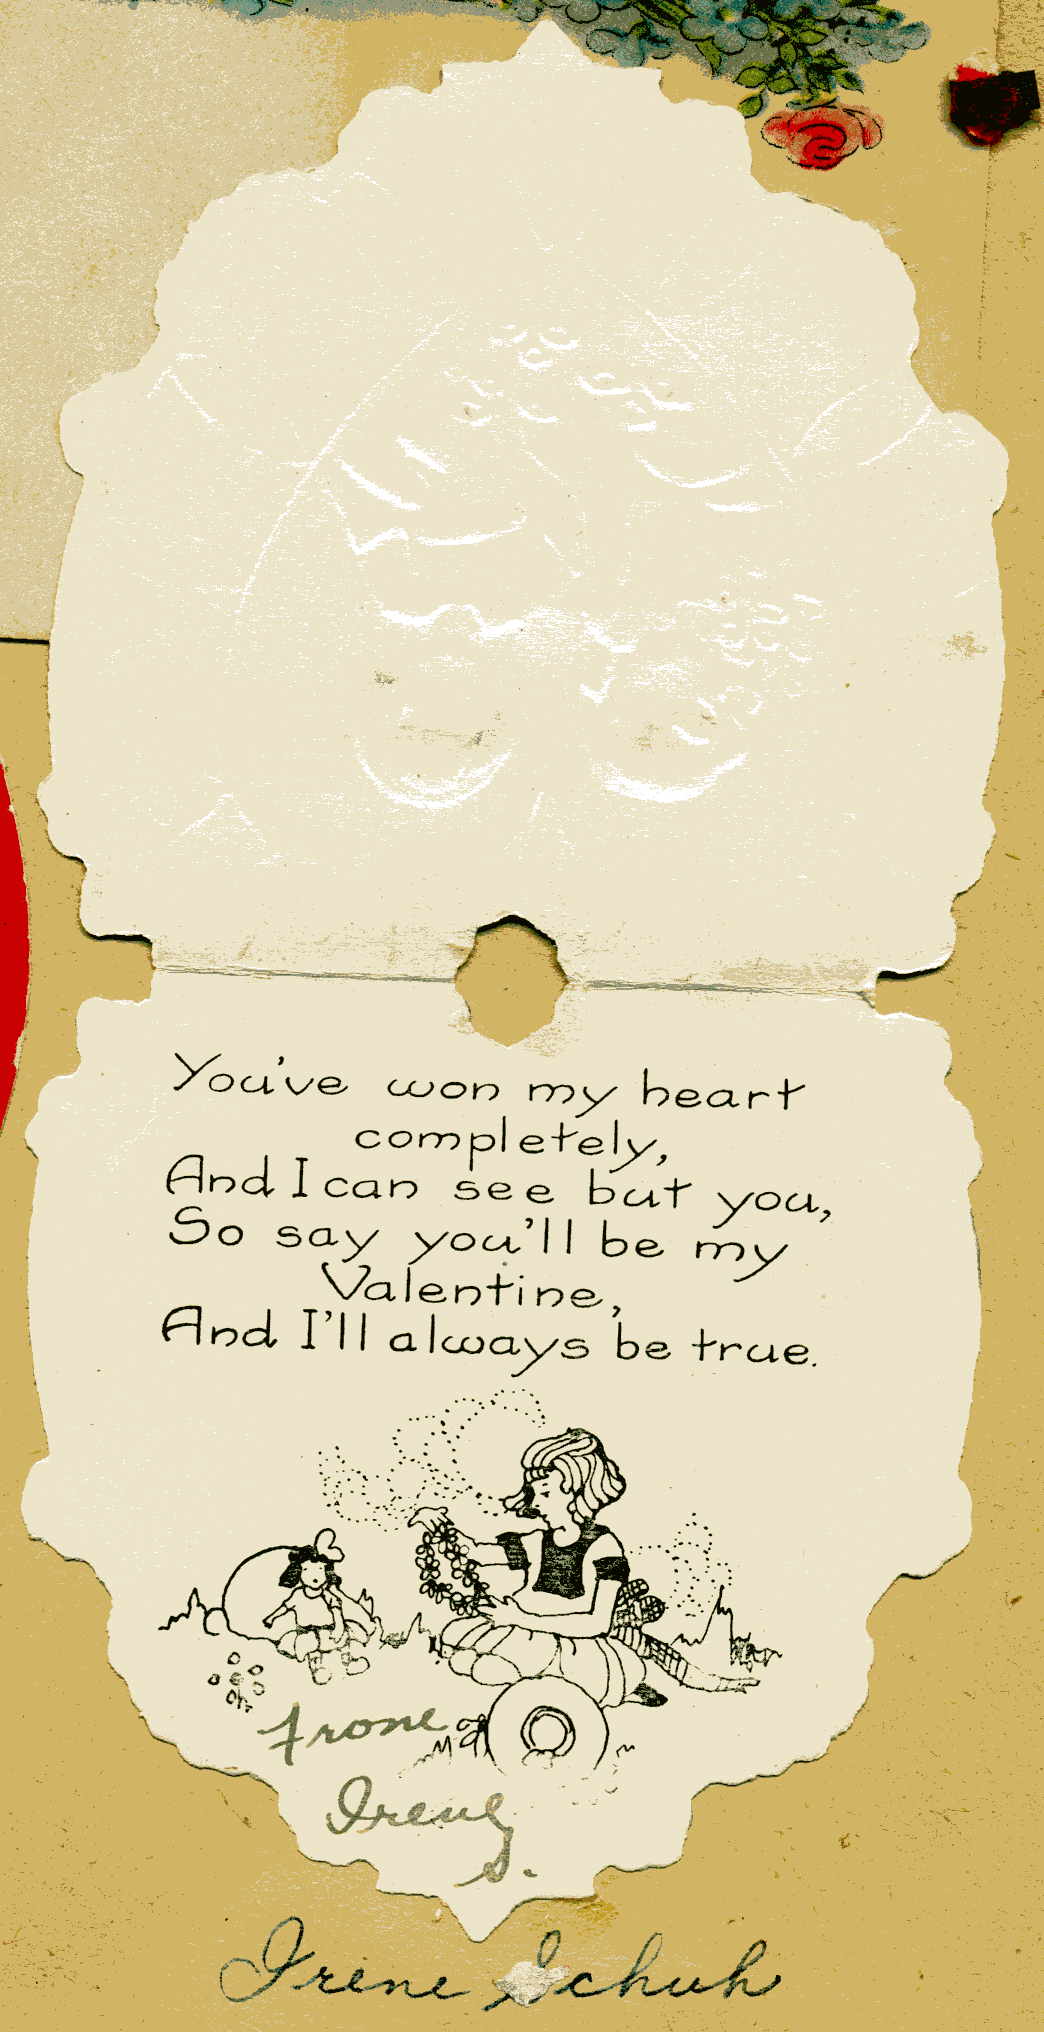 You've won my heart
completely,
And I can see but you,
So say you'll be my
Valentine,
And I'll always be true.
From
Irene
S.
Irene Schuh